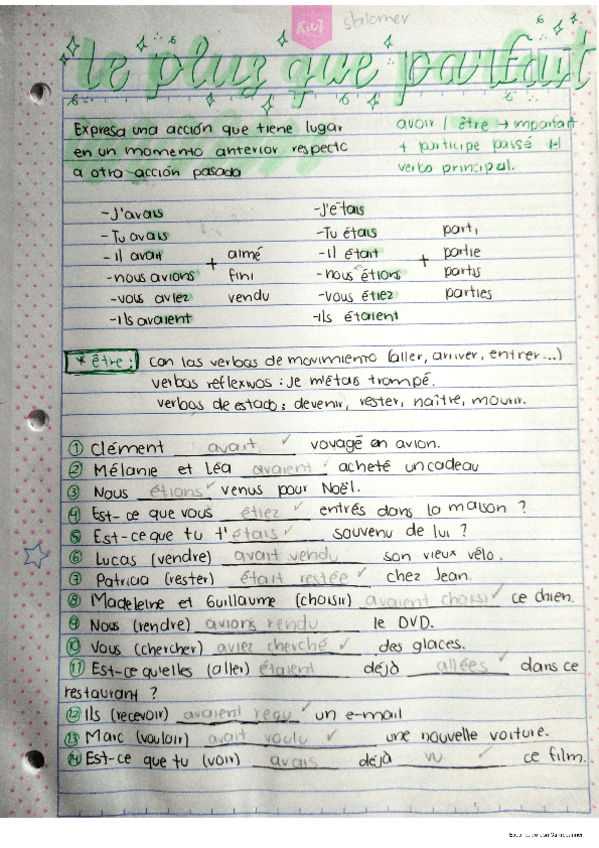 Kiut
le plus que parfait
Expresa una acción que tiene lugar
en un momento anterior respecto
a otra acción pasada
avoir / être → imparfait
+ participe passé del
verbo principal.
-J'avais
-Tu avais
-il avait
-nous avions
-vous aviez
-ils avaient
+
aimé
fini
vendu
-J'étais
-Tu étais
-il était
-nous étions
-vous étiez
-ils étaient
+
parti
partie
partis
parties
* être: con las verbas de movimiento (aller, arriver, entrer...)
verbas reflexivos: je m'étais trompé.
verbas de estado: devenir, rester, naître, mourir.
① Clément avait ✓ voyagé en avion.
② Mélanie et Léa avaient ✓ acheté un cadeau
③ Nous étions ✓ venus pour Noël.
④ Est-ce que vous étiez ✓ entrés dans la maison ?
⑤ Est-ce que tu t'étais ✓ souvenu de lui ?
⑥ Lucas (vendre) avait vendu son vieux vélo.
⑦ Patricia (rester) était restée ✓ chez Jean.
⑧ Madeleine et Guillaume (choisir) avaient choisi ✓ ce chien.
⑨ Nous (rendre) avions rendu le DVD.
⑩ Vous (chercher) aviez cherché ✓ des glaces.
⑪ Est-ce qu'elles (aller) étaient déjà allées ✓ dans ce
restaurant ?
⑫ Ils (recevoir) avaient reçu ✓ un e-mail
⑬ Marc (vouloir) avait voulu ✓ une nouvelle voiture.
⑭ Est-ce que tu (voir) avais déjà vu ✓ ce film.